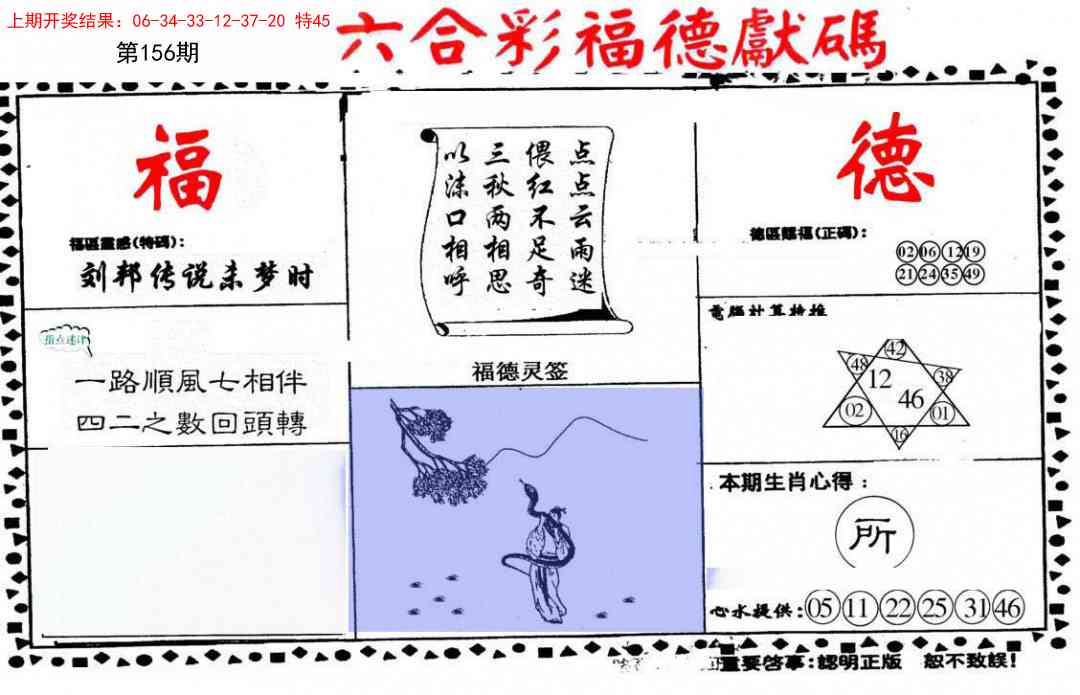 上期开奖结果: 06-34-33-12-37-20 特45
第156期
六合彩福德獻碼
福
福區靈感(特碼):
刘邦传说未梦时
指点迷津
一路順風七相伴
四二之數回頭轉
点点云雨迷
偎红不足奇
三秋两相思
以沫口相呼
福德灵签
德
德區賜福(正碼):
02 06 12 19
21 24 35 49
42
48 12 38
46
02 01
16
本期生肖心得:
所
心水提供:05 11 22 25 31 46
重要啓事:認明正版 恕不致誤!